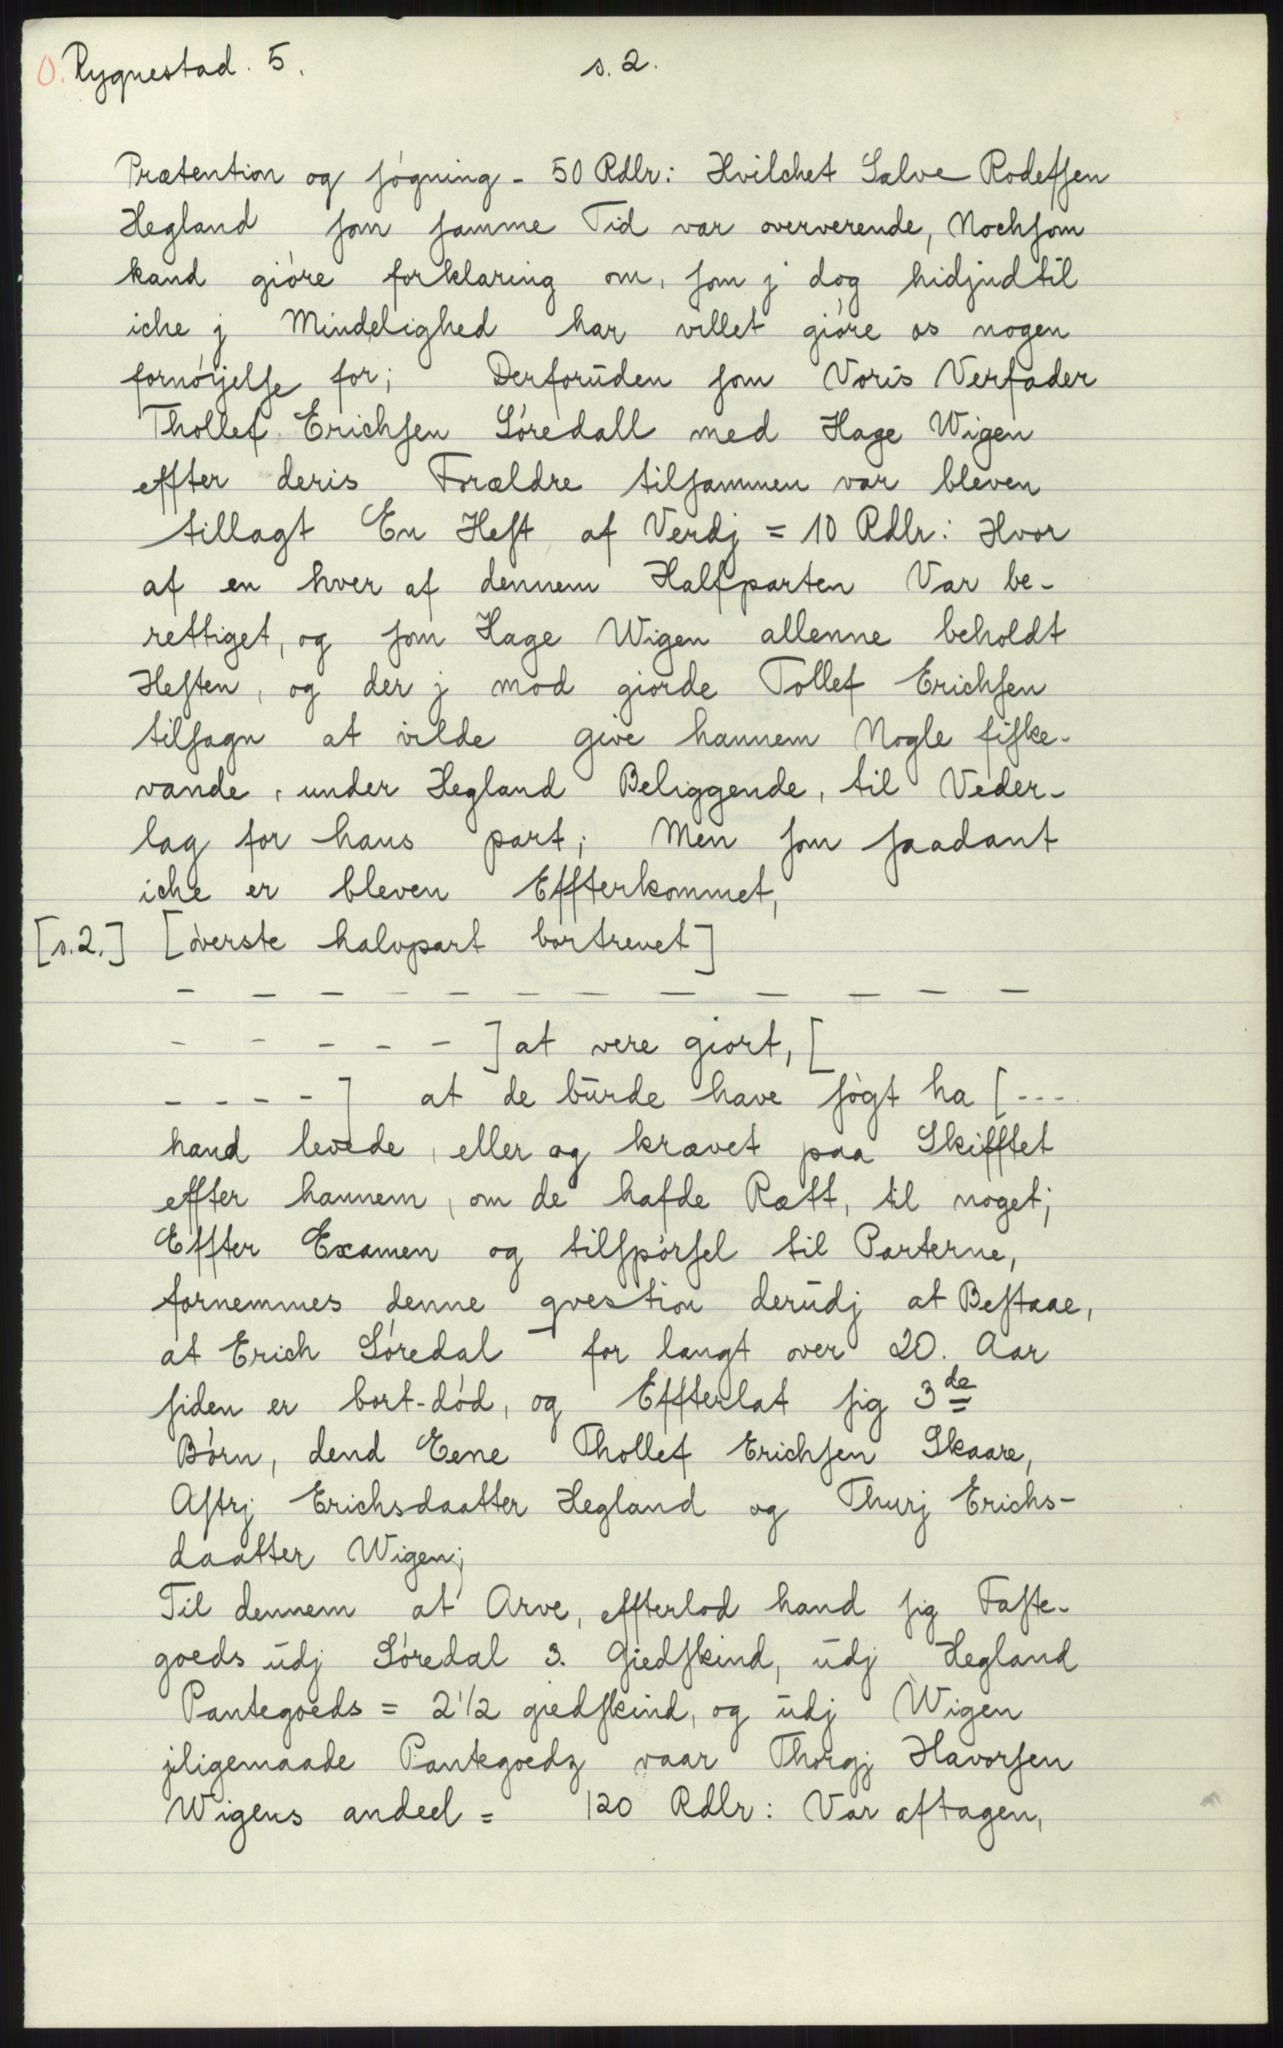 O. Rygnestad. 5.   s. 2.
Prætention og søgning - 50 Rdlr: Hvilchet Salve Rodefsen
Hegland som samme Tid var oververende, Nochsom
kand gióre forklaring om, som j dog hidjndtil
iche j Mindelighed har villet gióre os nogen
fornóyelse for; Derforuden som Voris Verfader
Thollef Erichsen Sóredall med Hage Wigen
effter deris Forældre tilsammen var bleven
tillagt En Hest af Verdj = 10 Rdlr: Hvor
af en hver af dennem Halfparten Var be-
rettiget, og som Hage Wigen allenne beholdt
Hesten, og der j mod giorde Tollef Erichsen
tilsagn at vilde give hannem Nogle fiske-
vande, under Hegland Beliggende, til Veder-
lag for hans part; Men som saadant
iche er bleven Effterkommet,
[s.2.] [óverste halvpart bortrevet]
- - - - - - - - - - - -
- - - - - ] at vere giort, [
- - - - ] at de burde have sógt ha [ - - -
hand levede, eller og krævet paa Skifftet
effter hannem, om de hafde Rætt, til noget;
Effter Examen og tilspórsel til Parterne,
fornemmes denne qvestion derudj at Bestaae,
at Erich Sóredal for langt over 20. Aar
siden er bort-dód, og Effterlat sig 3de
Bórn, dend Eene Thollef Erichsen Skaare,
Astrj Erichsdaatter Hegland og Thurj Erichs-
daatter Wigen;
Til dennem at Arve, effterlod hand sig Faste-
goeds udj Sóredal 3. Giedskind, udj Hegland
Pantegoeds = 2 1/2 giedskind, og udj Wigen
jligemaade Pantegoedz vaar Thorgj Havorsen
Wigens andeel = 120 Rdlr: Var aftagen,